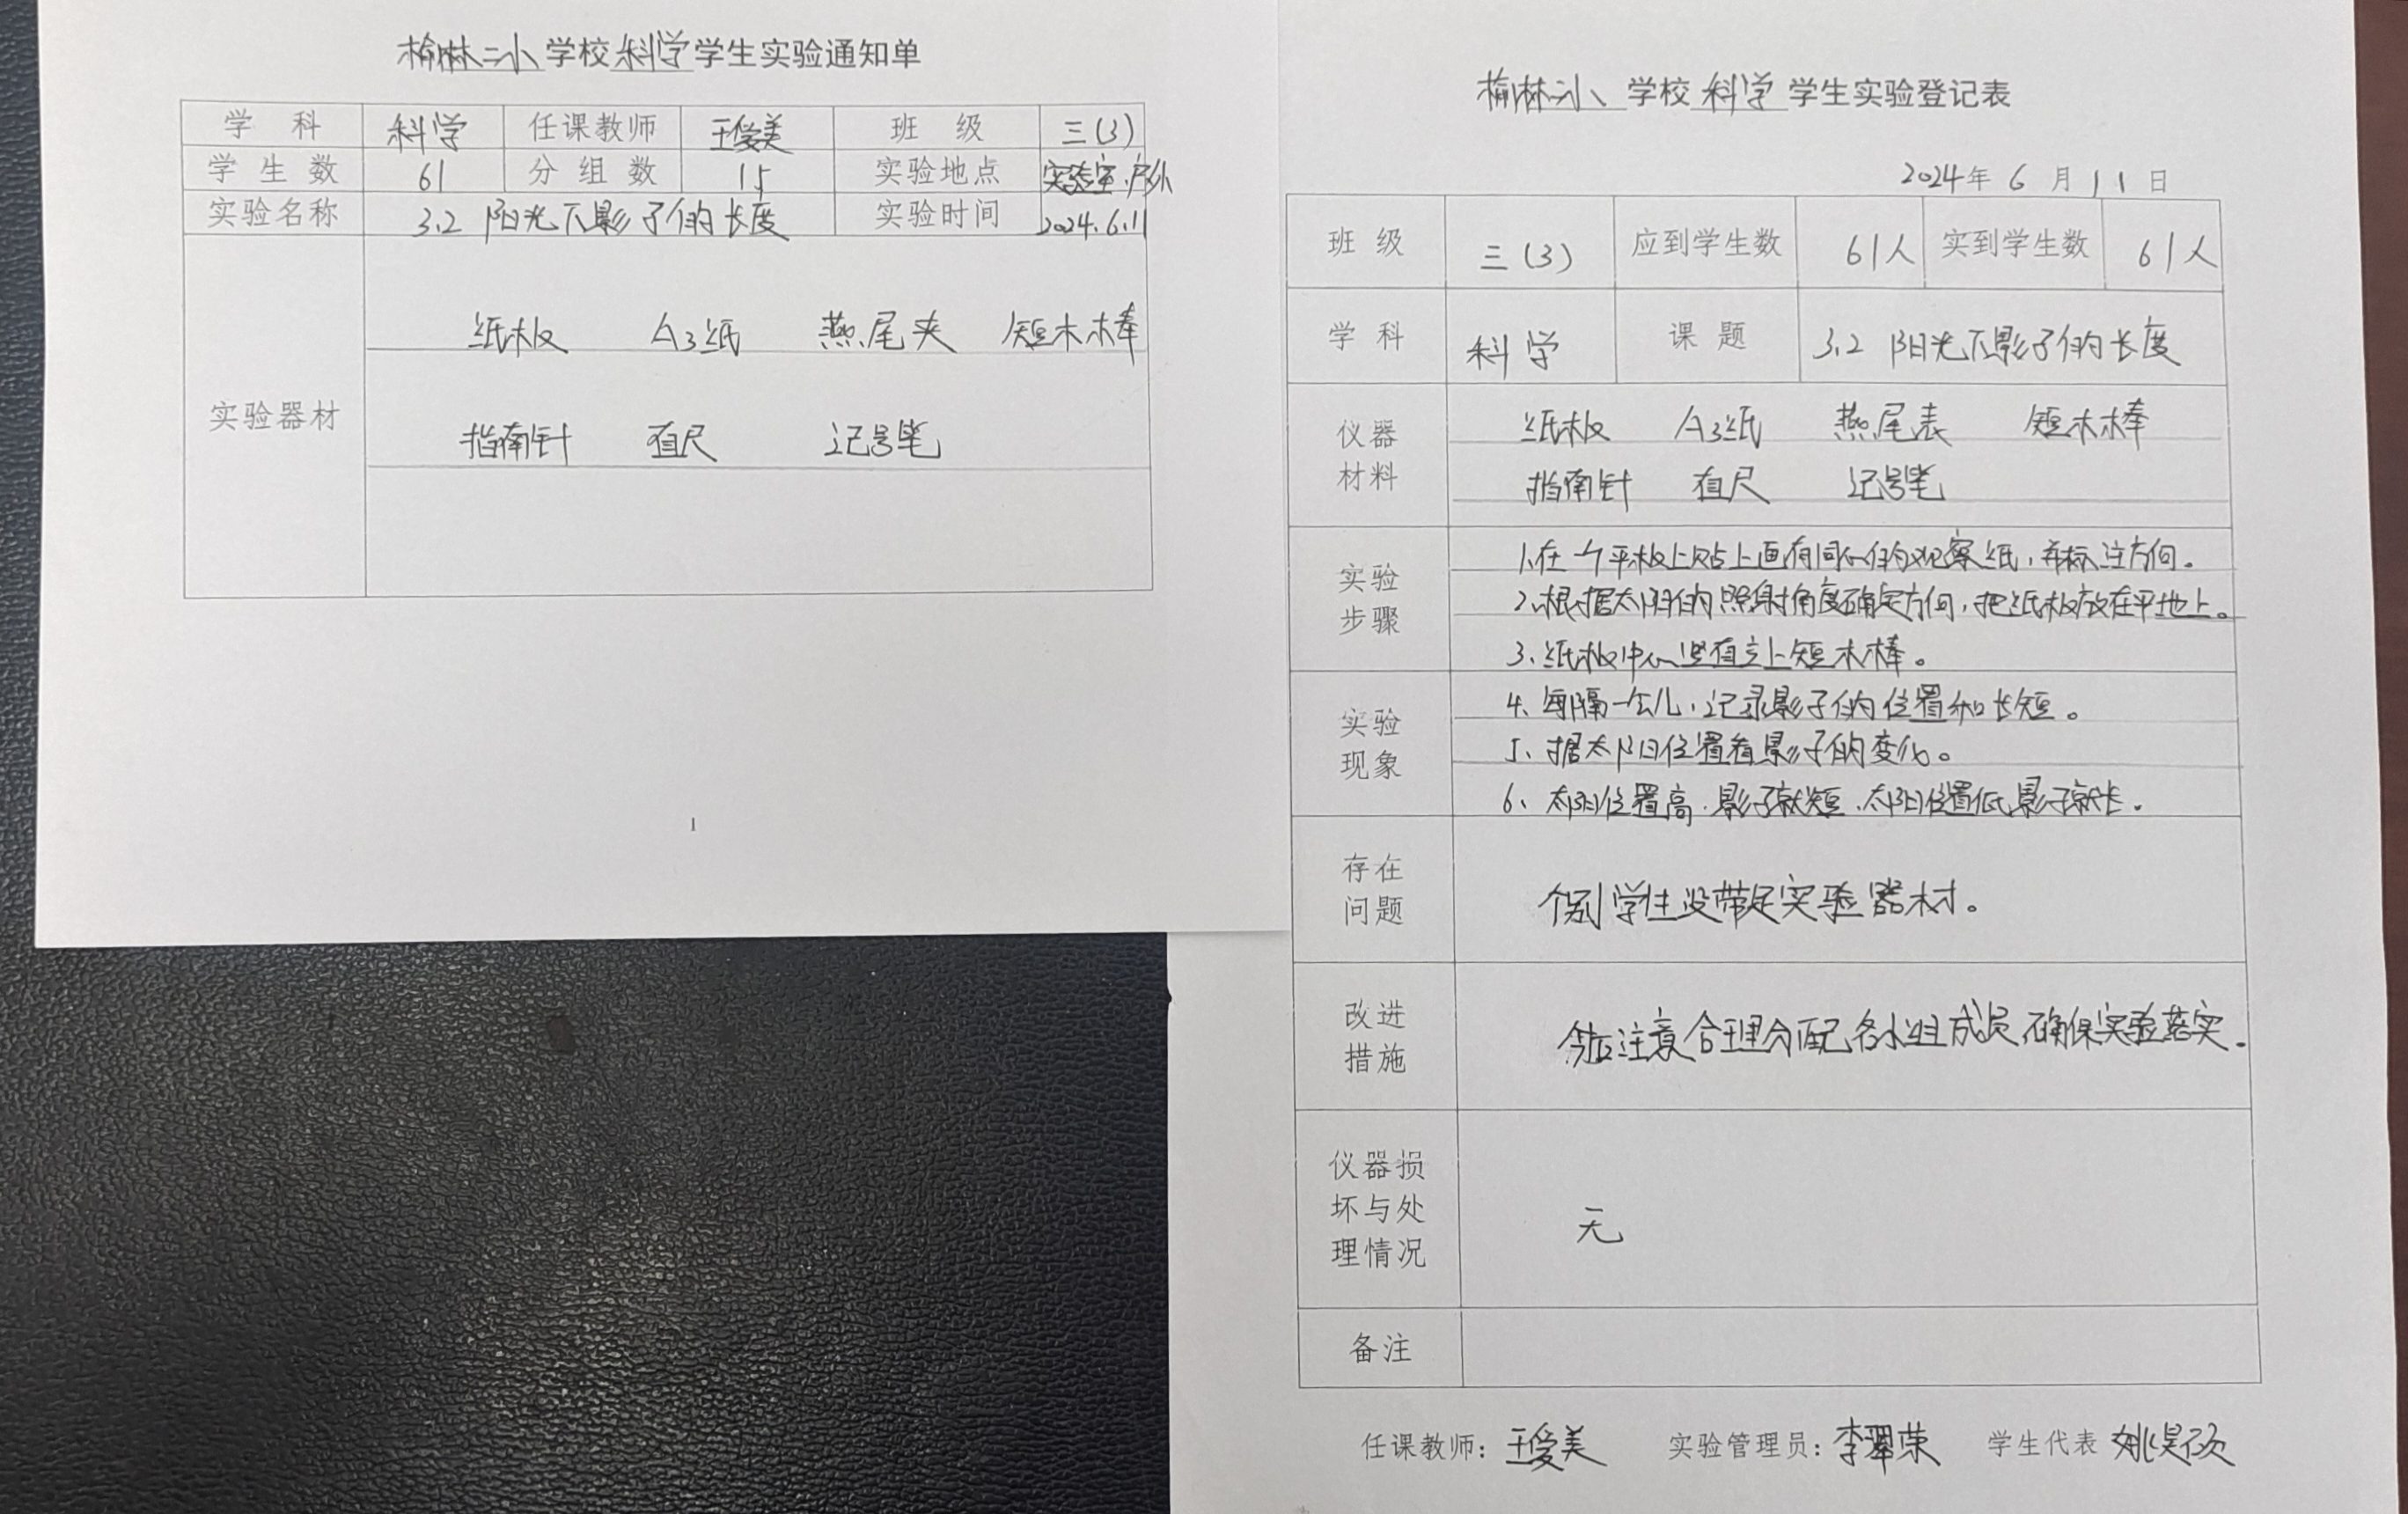 榆林二小学校科学学生实验通知单
学 科 科学 任课教师 王爱美 班 级 三(3)
学生数 61 分组数 15 实验地点 实验室.户外
实验名称 3.2 阳光下影子的长度 实验时间 2024.6.11
实验器材
纸板 A3纸 燕尾夹 短木棒
指南针 直尺 记号笔
1
榆林二小学校科学学生实验登记表
2024年6月11日
班 级 三(3) 应到学生数 61人 实到学生数 61人
学 科 科学 课 题 3.2 阳光下影子的长度
仪器
材料
纸板 A3纸 燕尾表 短木棒
指南针 直尺 记号笔
实验
步骤
1.在一个平板上贴上画有同心的观察纸,并标注方向。
2.根据太阳的照射角度确定方向,把纸板放在平地上。
3、纸板中心竖直立上短木棒。
实验
现象
4、每隔一会儿,记录影子的位置和长短。
5、据太阳位置看影子的变化。
6、太阳位置高.影子就短.太阳位置低影子就长.
存在
问题
个别学生没带足实验器材。
改进
措施
今后注意合理分配各小组成员,确保实验落实.
仪器损
坏与处
理情况
无
备注
任课教师:王爱美 实验管理员:李翠荣 学生代表